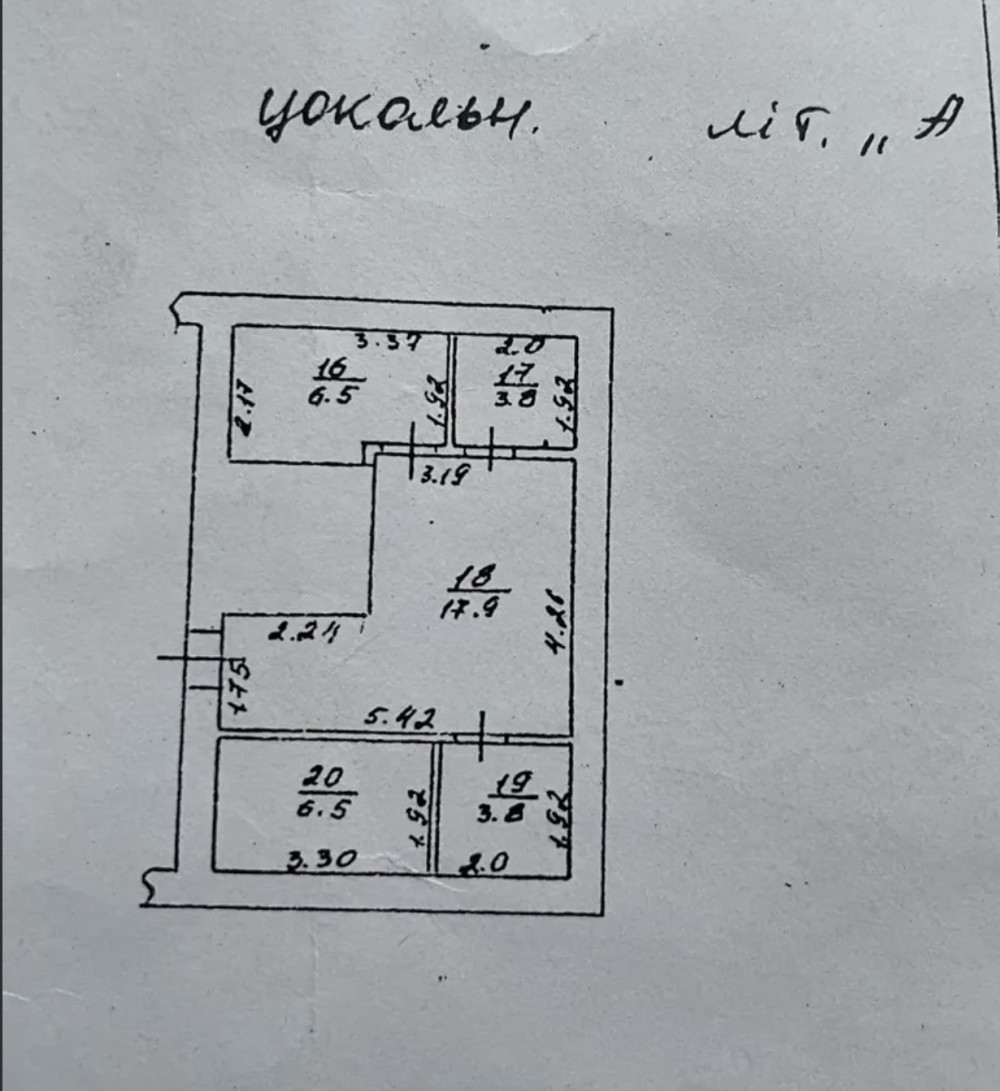 цокальн. літ. „А
3.37 2.0
16
6.5
17
3.8
2.17 1.92 1.92
3.19
18
17.9
4.26
2.24
1.75
5.42
20
6.5
19
3.8
1.92 1.92
3.30 2.0